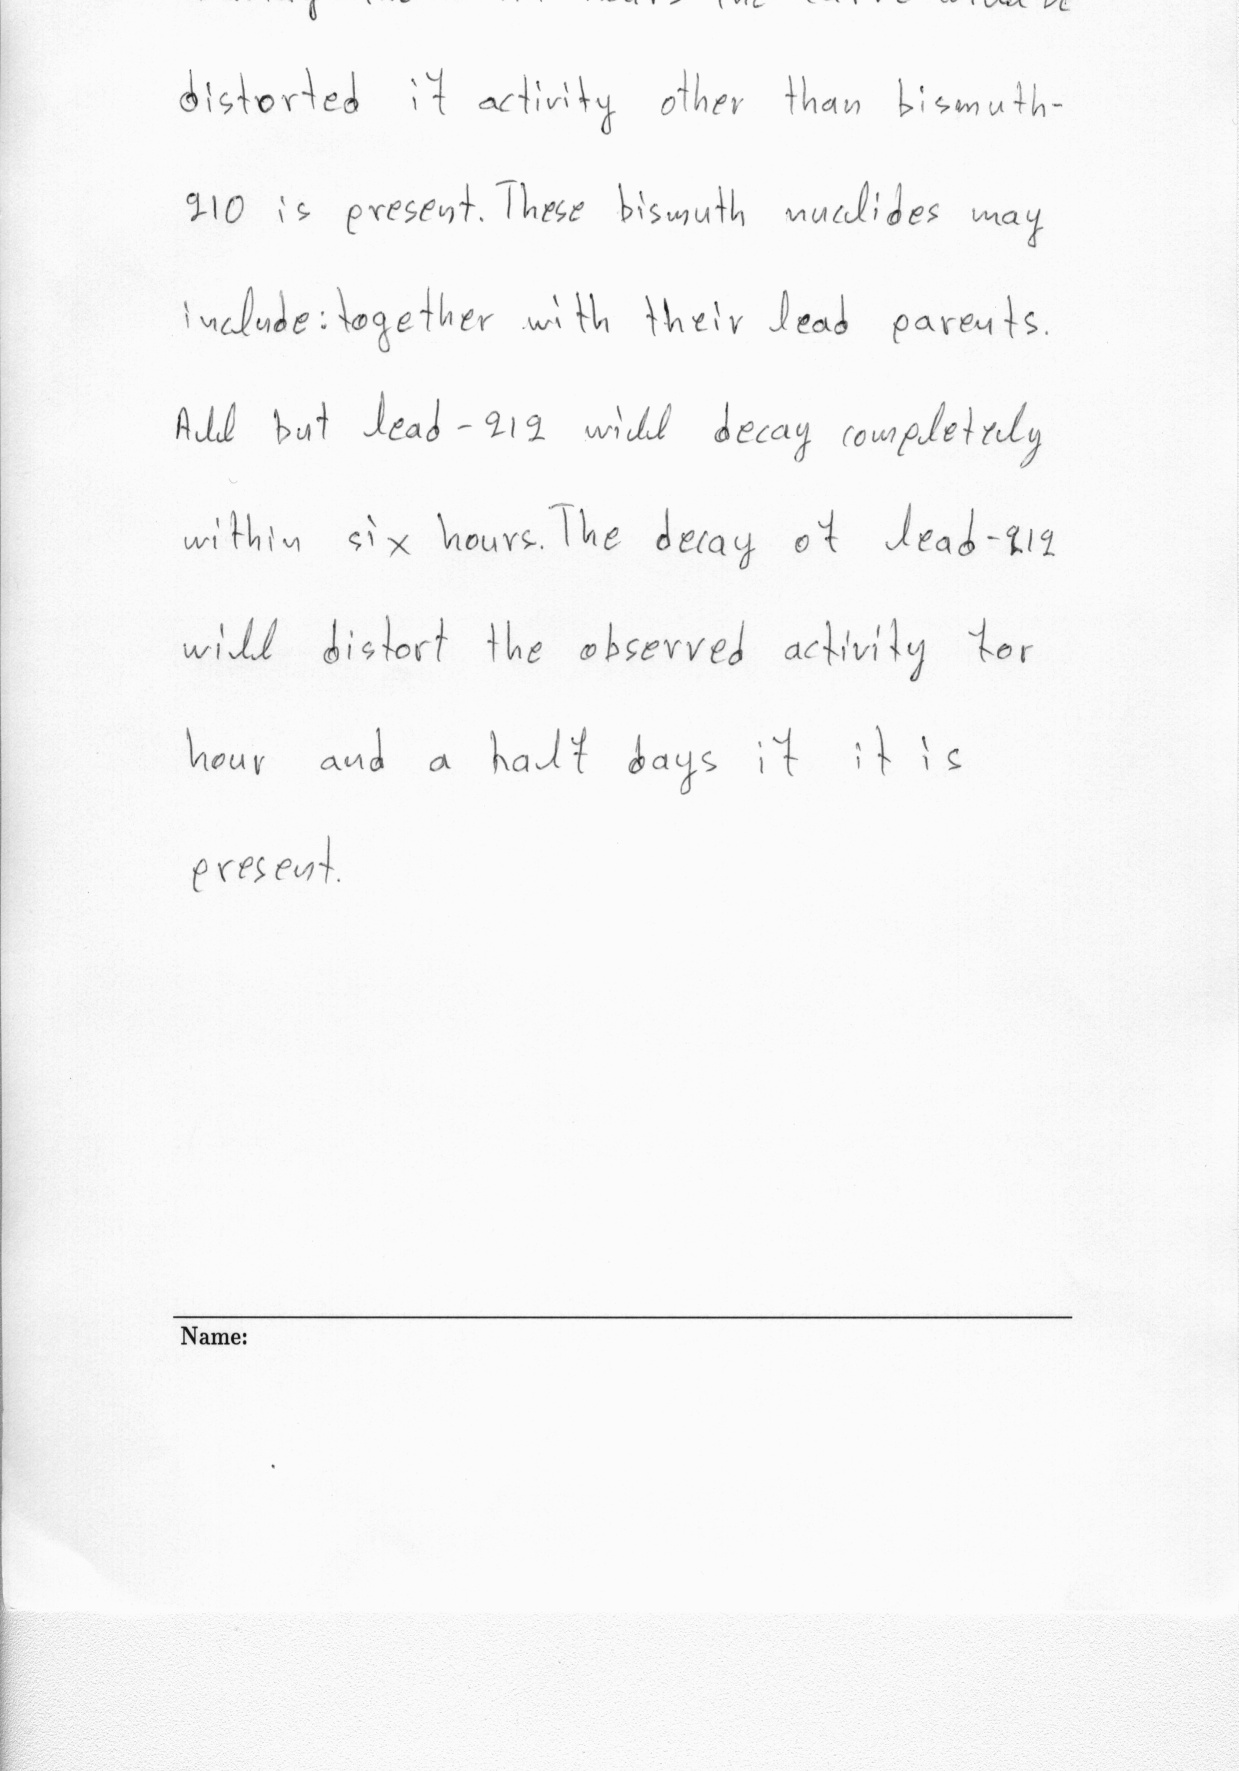 distorted if activity other than bismuth-
210 is present. These bismuth nuclides may
include: together with their lead parents.
All but lead-212 will decay completely
within six hours. The decay of lead-212
will distort the observed activity for
hour and a half days if it is
present.
Name: